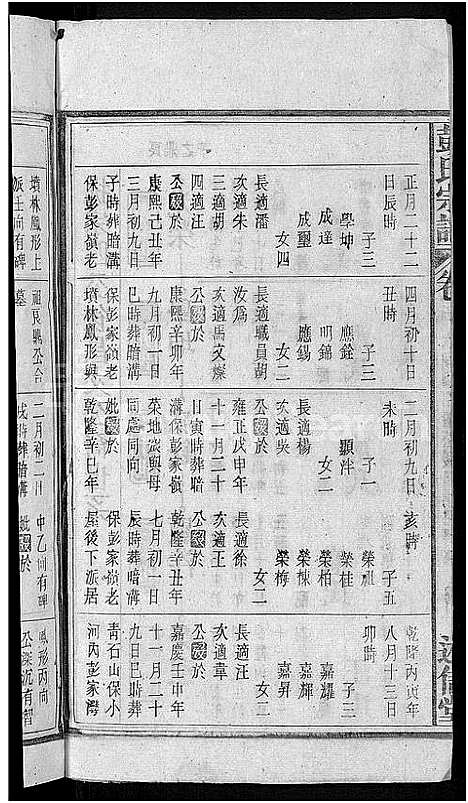 彭氏宗譜
卷
正月二十二
日辰時
子三
學坤
成達
成璽
女四
長適潘
次適朱
三適胡
四適汪
公歿於
康熙己丑年
三月初九日
子時葬暗溝
保彭家嶺老
墳林鳳形上
四月初十日
丑時
子三
應銓
明錦
應錫
女二
長適職員胡
汝為
次適馬文燦
公歿於
康熙辛卯年
九月初一日
保彭家嶺老
墳林鳳形與
二月初九日
未時
子一
顯泮
女二
長適楊
次適吳
公歿於
雍正戊申年
十一月二十
日寅時葬暗
溝保彭家嶺
菜地嵗與母
同處同向
妣歿於
乾隆辛巳年
二月初二日
亥時
子五
榮祖
榮桂
榮柏
榮棟
榮梅
女二
長適徐
次適王
公歿於
乾隆辛丑年
七月初一日
辰時葬暗溝
保彭家嶺老
屋後下派居
中乙向有碑
妣歿於
乾隆丙寅年
八月十三日
卯時
子三
嘉耀
嘉昇
女二
長適汪
次適韋
公歿於
嘉慶壬申年
十一月二十
九日巳時葬
青石山保小
河內彭家灣
鳳形丙向